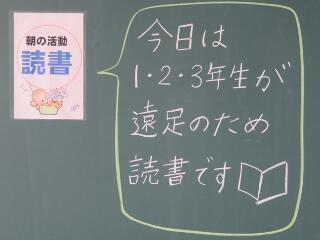 朝の活動
読書
今日は
1・2・3年生が
遠足のため
読書です